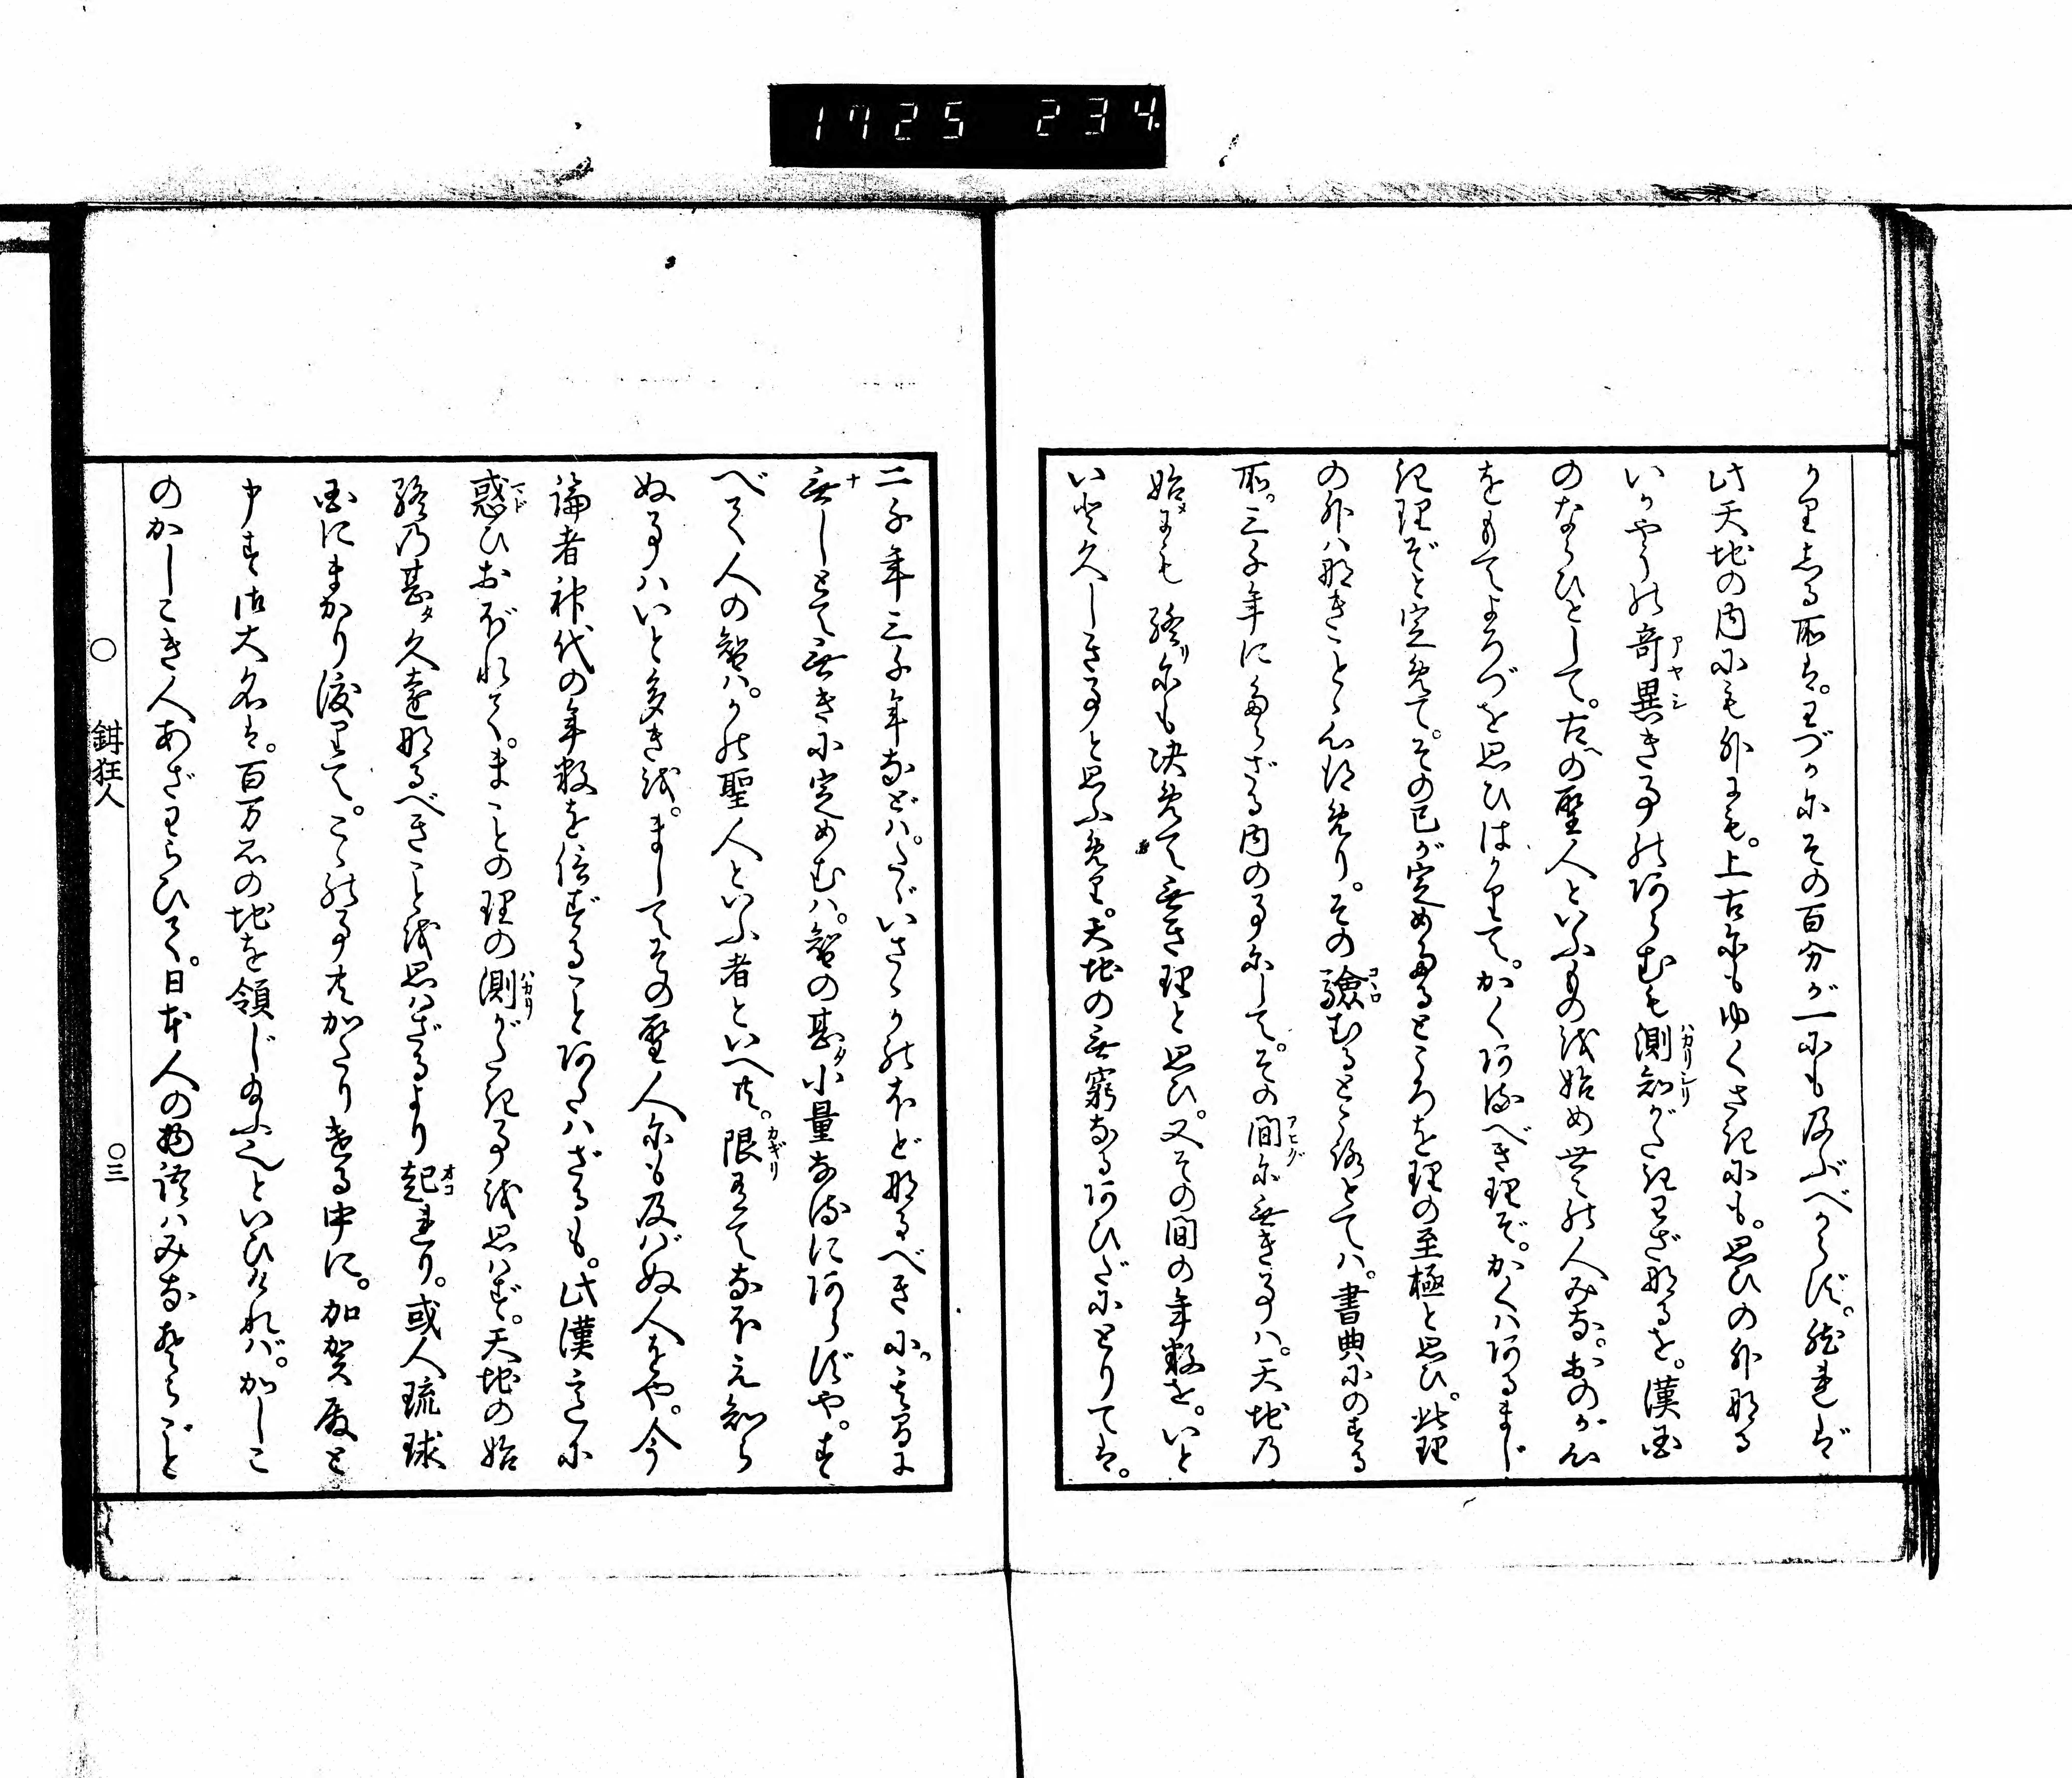 1725 234.
かりしる所は。わづかにその百分が一にも及ぶべからず。然れば
此天地の内にも外にも。上古にもゆくさきにも。思ひの外なる
いかやうの奇異き事のあらむも測知がたきわざなるを。漢国
のならひとして。古への聖人といふもの を始め世々の人みな。おのが心
をもてよろづを思ひはかりて。かくあるべき理ぞ。かくはあるまじ
き理ぞと定めて。その己が定めたるところを理の至極と思ひ。此理
の外はなきことゝ心得めり。その験むるところとては。書典にのする
所。三千年にたらざる内の事にして。その間に無き事は。天地の
始にも終りにも決めて無き理と思ひ。又その間の年数を。いと
いと久しき事と思ふめり。天地の無窮なるあひだにとりては。
二千年三千年などは。たゞいさゝかのほどなるべきに。其間に
無しとて無きに定めむは。智の甚小量なるにあらずや。す
べて人の智は。かの聖人といふ者といへ共。限有てなほえ知ら
ぬ事はいと多きを。ましてその聖人にも及ばぬ人をや。今
論者神代の年数を信ずることあたはざるも。此漢意に
惑ひおぼれて。まことの理の測がたき事を思はず。天地の始
終の甚久遠なるべきことを思はざるより起れり。或人琉球
国にまかり渡りて。こゝの事共かたりける中に。加賀殿と
申す御大名は。百万石の地を領じ給ふといひければ。かしこ
のかしこき人あざわらひて。日本人の物語はみなそらごと
○ 鉗狂人 ○三